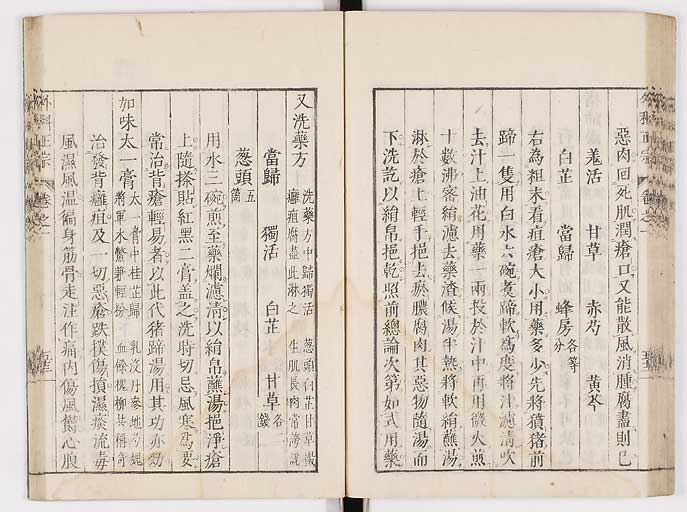 惡肉回死肌潤瘡口又能散風消腫腐盡則已
羗活 甘草 赤芍 黃芩
白芷 當歸 蜂房各等分
右為粗末看疽瘡大小用藥多少先將㹠猪前
蹄一隻用白水六碗煑蹄軟為度將汁濾清吹
去汁上油花用藥一兩投於汁中再用微火煎
十數沸窨絹濾去藥渣候湯半熱將軟絹蘸湯
淋於瘡上輕手挹去瘀膿腐肉其惡物隨湯而
下洗訖以絹帛挹乾照前總論次第如式用藥
又洗藥方
洗藥方中歸獨活 葱頭白芷甘草
癰疽腐盡此淋之 生肌長肉常
當歸 獨活 白芷 甘草各 錢
葱頭五箇
用水三碗煎至藥爛濾清以絹帛蘸湯挹淨瘡
上隨搽貼紅黑二膏蓋之洗時切忌風寒為要
常治背瘡輕易者以此代猪蹄湯用其功亦効
加味太一膏
太一膏中桂芷歸 乳沒丹參地芍
將軍木鱉兼輕粉 血餘槐柳共稱奇
治發背癰疽及一切惡瘡跌撲傷損濕痰流毒
風濕風溫徧身筋骨走注作痛內傷風鬱心腹
外科正宗 卷之一